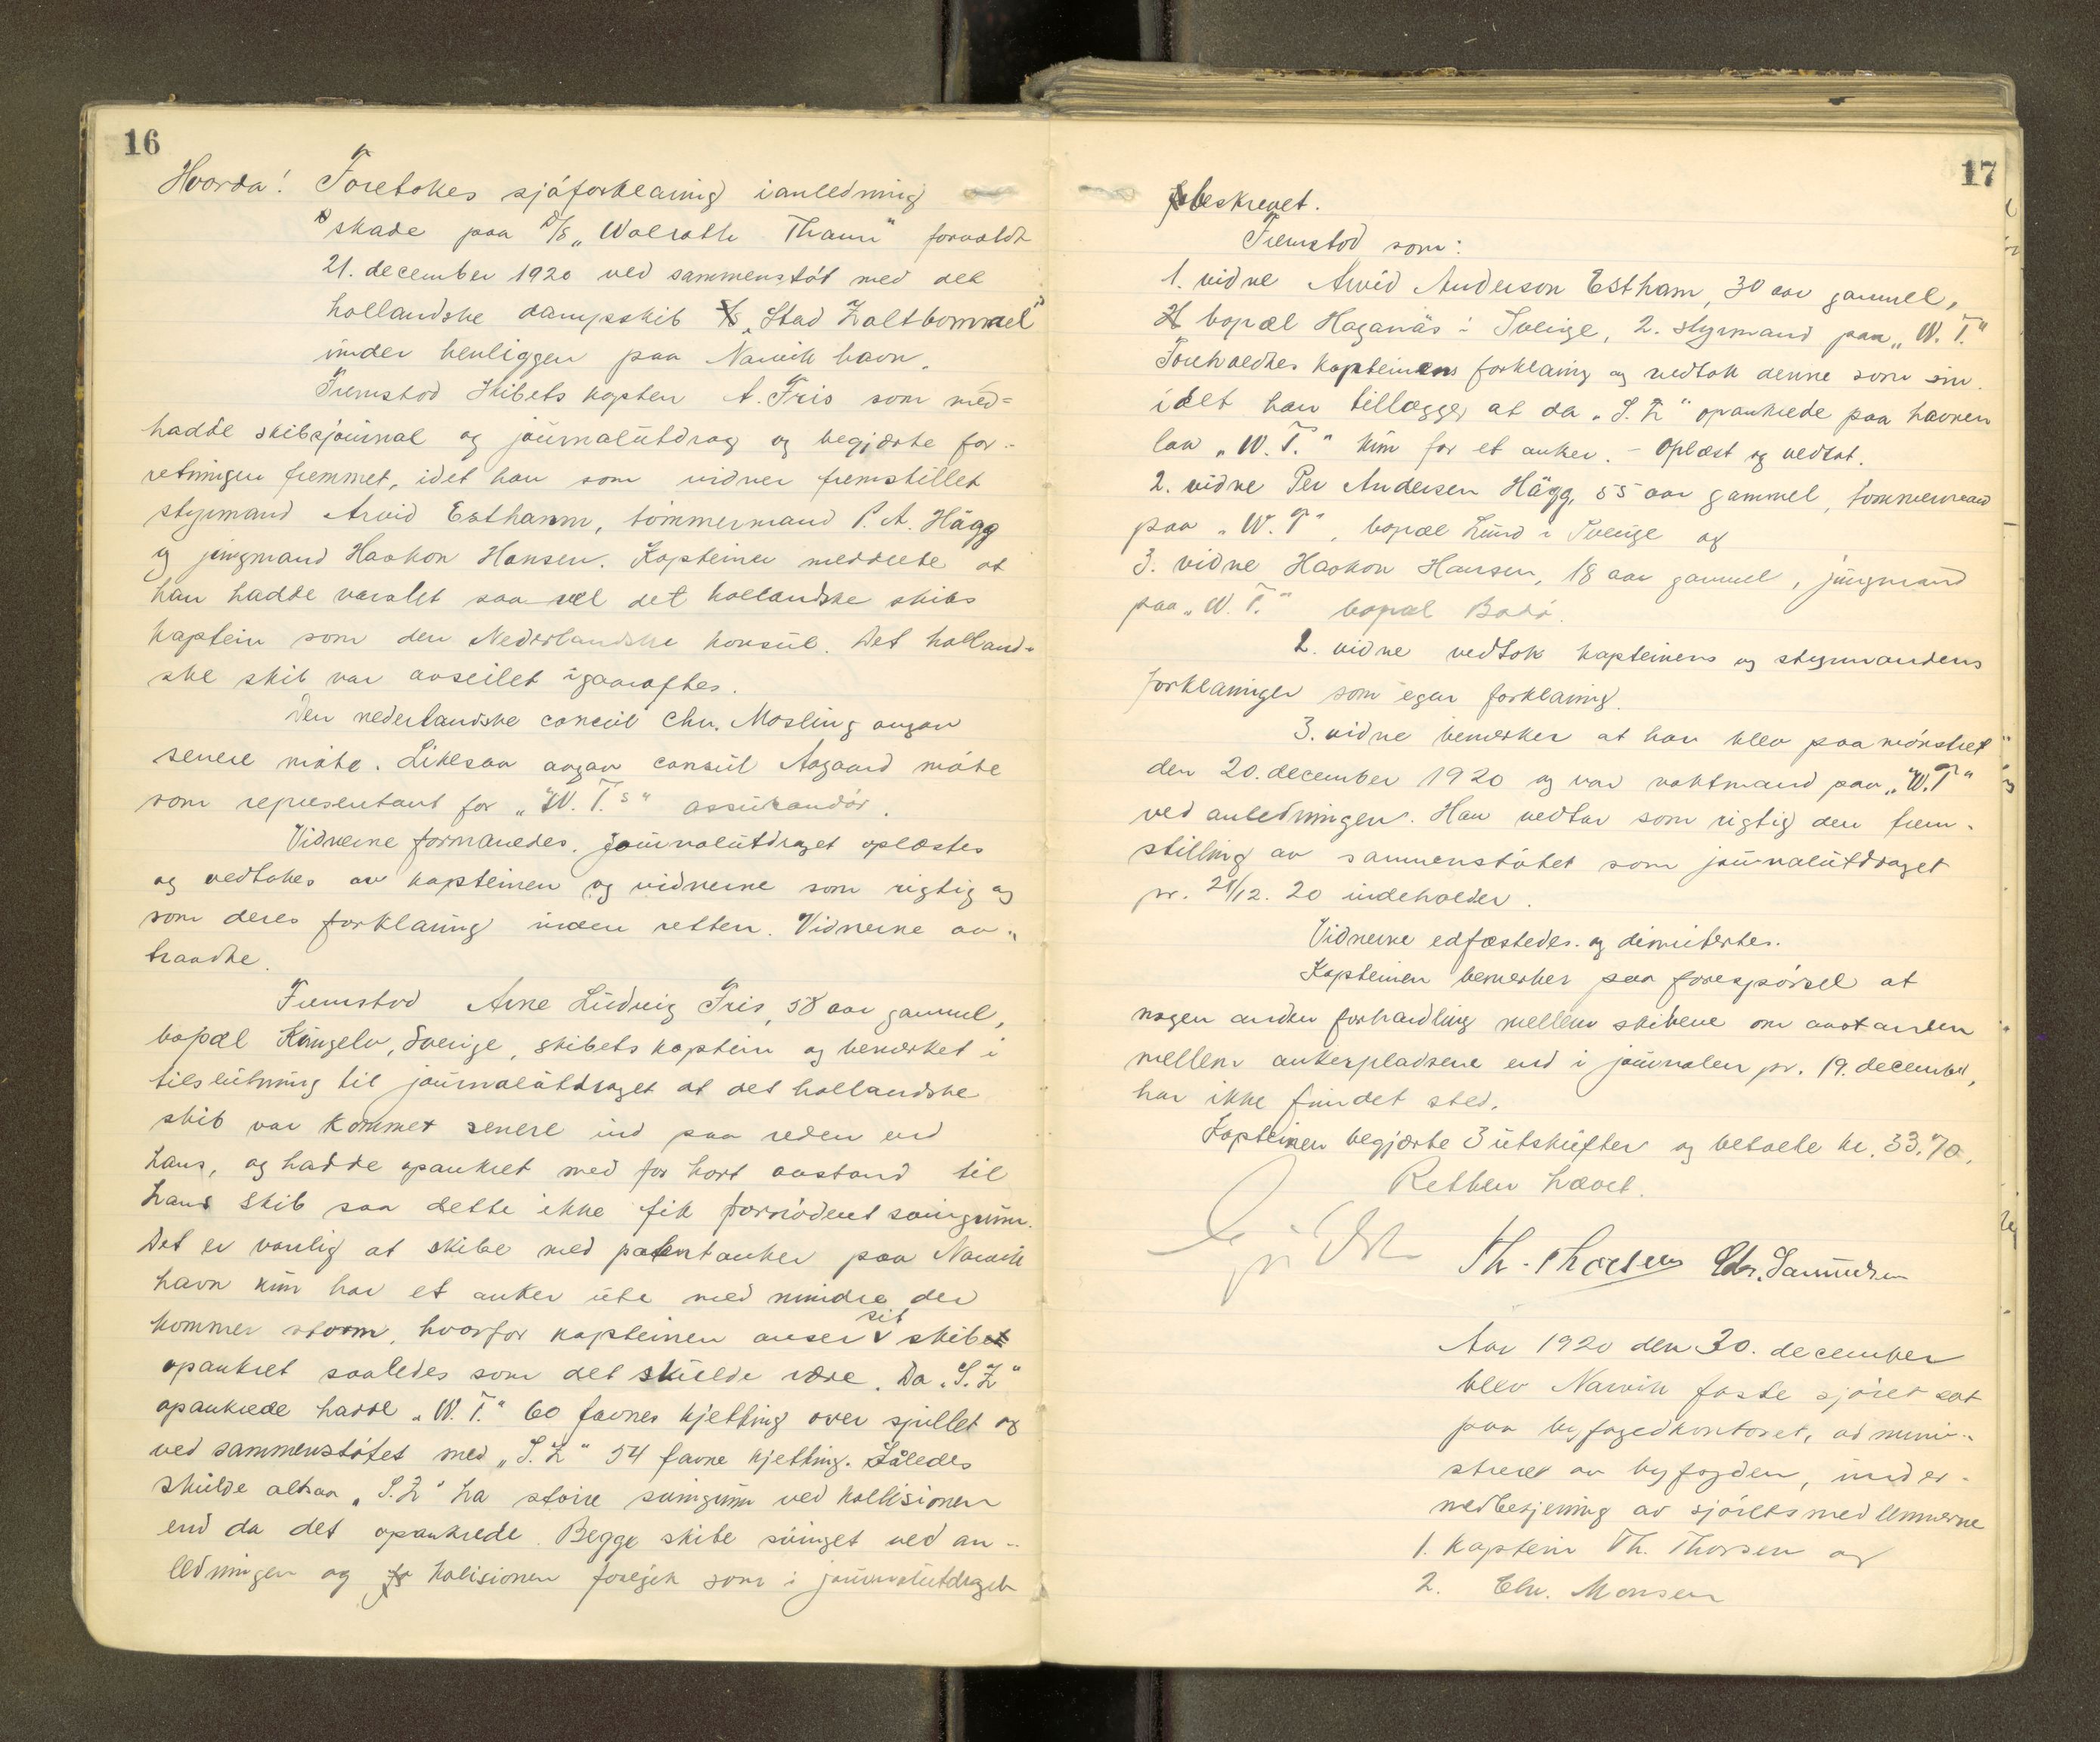 16
Hvorda! Foretokes sjøforklaring i anledning
skade paa D/S „Walrath Tham" forvoldt
21. december 1920 ved sammenstøt med det
hollandske dampskib „Stad Zaltbommel"
under henliggen paa Narvik havn.
Fremstod skibets kaptein A. Fris som med=
hadde skibsjournal og journalutdrag og begjærte for-
retningen fremmet, idet han som vidner fremstillet
styrmand Arvid Estham, tømmermand P. A. Hägg
og jungmand Haakon Hansen. Kapteinen meddelte at
han hadde varslet saavel det hollandske skibs
kaptein som den Nederlandske konsul. Det holland=
ske skib var avseilet igaaraftes.
Den nederlandske concul Chr. Mosling avgav
senere møte. Likesaa avgav consul Aagaard møte
som representant for „W. T.s" assurandør.
Vidnerne formanedes. Journalutdraget oplæstes
og vedtokes av kapteinen og vidnerne som rigtig og
som deres forklaring inden retten. Vidnerne av-
traadte.
Fremstod Arne Ludvig Fris, 58 aar gammel,
bopæl Kungelv, Sverige, skibets kaptein og bemerket i
tilslutning til journalutdraget at det hollandske
skib var kommet senere ind paa reden end
hans, og hadde opankret med for kort avstand til
hans skib saa dette ikke fik fornødent svingrum.
Det er vanlig at skibe med patentanker paa Narvik
havn kun har et anker ute med mindre der
kommer storm, hvorfor kapteinen anser sit skib
opankret saaledes som det skulde være. Da „S. Z"
opankrede hadde „W. T." 60 favnes kjetting over spillet og
ved sammenstøtet med „S. Z" 54 favne kjetting. Således
skulde altsaa „S. Z" ha større svingrum ved kollisionen
end da det opankrede. Begge skibe svinget ved an-
ledningen og kolisionen foregik som i journalutdraget
17
beskrevet.
Fremstod som:
1. vidne Arvid Anderson Estham, 30 aar gammel,
bopæl Haganäs i Sverige, 2. styrmand paa „W. T."
Foreholdtes kapteinens forklaring og vedtok denne som sin.
idet han tillægger at da „S. Z" opankrede paa havnen
laa „W. T." kun for et anker. - Oplæst og vedtat.
2. vidne Per Andersen Hägg, 55 aar gammel, tømmermand
paa „W. T", bopæl Lund i Sverige og
3. vidne Haakon Hansen, 18 aar gammel, jungmand
paa „W. T." bopæl Bodø.
2. vidne vedtok kapteinens og styrmandens
forklaringer som egen forklaring.
3. vidne bemerker at han blev paamønstret
den 20. december 1920 og var vaktmand paa „W. T"
ved anledningen. Han vedtar som rigtig den frem-
stilling av sammenstøtet som journalutdraget
pr. 21/12. 20 indeholder.
Vidnerne edfæstedes. og dimitertes.
Kapteinen bemerker paa forespørsel at
nogen anden forhandling mellem skibene om avstanden
mellem ankerpladsene end i journalen pr. 19. december,
har ikke fundet sted.
Kapteinen begjærte 3 utskrifter og betalte kr. 33.70.
Retten hævet.
Th. Thorsen Chr. Samuelsen
Aar 1920 den 30. december
blev Narvik faste sjøret sat
paa byfogedkontoret, admini-
streret av byfogden, under
medbetjening av sjøretsmedlemmerne
1. Kaptein Th. Thorsen og
2. Chr. Monsen